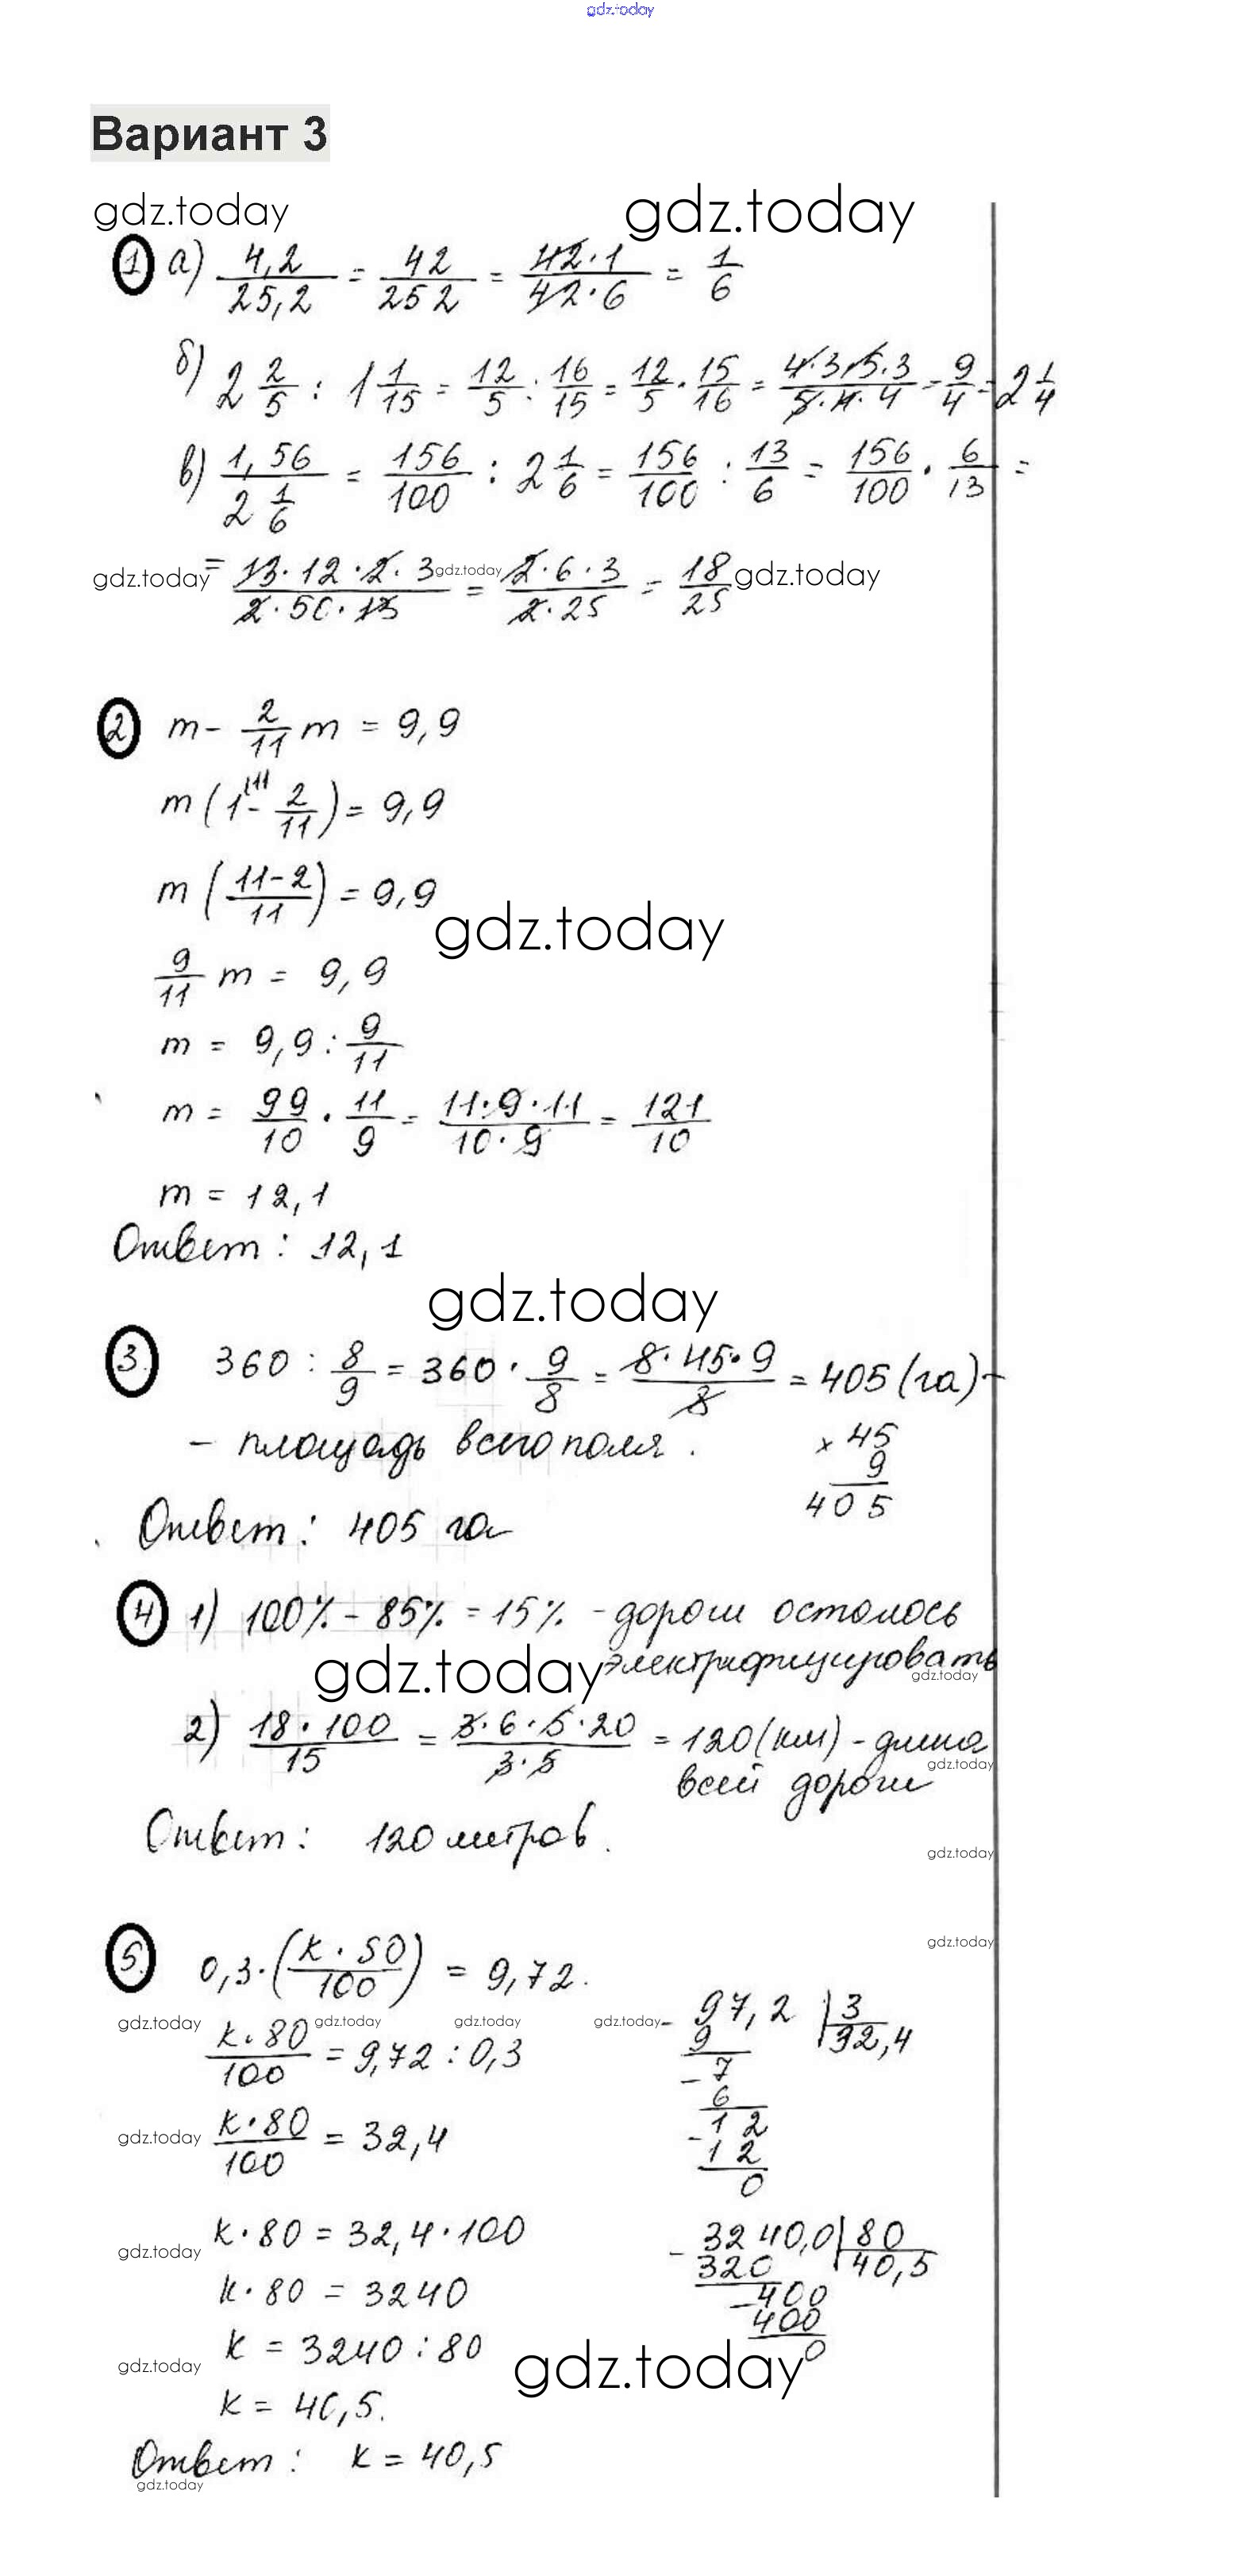 gdz.today
Вариант 3
gdz.today gdz.today
1 а) 4,2/25,2 = 42/252 = 42·1/42·6 = 1/6
б) 2 2/5 : 1 1/15 = 12/5 : 16/15 = 12/5 · 15/16 = 4·3·5·3/5·4·4 = 9/4 = 2 1/4
в) 1,56/2 1/6 = 156/100 : 2 1/6 = 156/100 : 13/6 = 156/100 · 6/13 =
gdz.today = 13·12·2·3/2·50·13 gdz.today = 2·6·3/2·25 = 18/25 gdz.today
2 m - 2/11 m = 9,9
m (1 - 2/11) = 9,9
m (11-2/11) = 9,9
gdz.today
9/11 m = 9,9
m = 9,9 : 9/11
m = 99/10 · 11/9 = 11·9·11/10·9 = 121/10
m = 12,1
Ответ: 12,1
gdz.today
3. 360 : 8/9 = 360 · 9/8 = 8·45·9/8 = 405 (га) -
- площадь всего поля.
× 45
9
405
Ответ: 405 га
4 1) 100% - 85% = 15% - дороги осталось
gdz.today электрифицировать
gdz.today
2) 18·100/15 = 3·6·5·20/3·5 = 120 (км) - длина
gdz.today
всей дороги
Ответ: 120 метров.
gdz.today
gdz.today
5. 0,3·(k·50/100) = 9,72.
gdz.today gdz.today gdz.today gdz.today
k·80/100 = 9,72 : 0,3
- 97,2 | 3
9 32,4
- 7
6
- 12
12
0
gdz.today k·80/100 = 32,4
k·80 = 32,4·100
gdz.today
- 3240,0 | 80
320 40,5
- 400
400
0
k·80 = 3240
k = 3240 : 80
gdz.today gdz.today
k = 40,5.
Ответ: k = 40,5
gdz.today